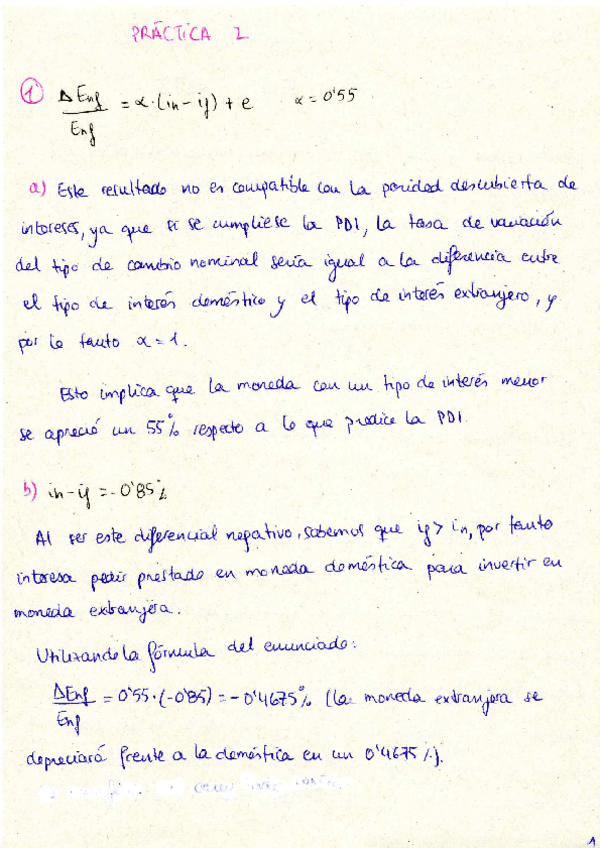 PRÁCTICA 2
1 ΔEnf/Enf = α·(in-if) + e α = 0'55
a) Este resultado no es compatible con la paridad descubierta de
intereses, ya que si se cumpliese la PDI, la tasa de variación
del tipo de cambio nominal sería igual a la diferencia entre
el tipo de interés doméstico y el tipo de interés extranjero, y
por lo tanto α = 1.
Esto implica que la moneda con un tipo de interés menor
se apreció un 55% respecto a lo que predice la PDI.
b) in-if = -0'85%
Al ser este diferencial negativo, sabemos que if > in, por tanto
interesa pedir prestado en moneda doméstica para invertir en
moneda extranjera.
Utilizando la fórmula del enunciado:
ΔEnf/Enf = 0'55·(-0'85) = -0'4675% (la moneda extranjera se
depreciará frente a la doméstica en un 0'4675%).
1